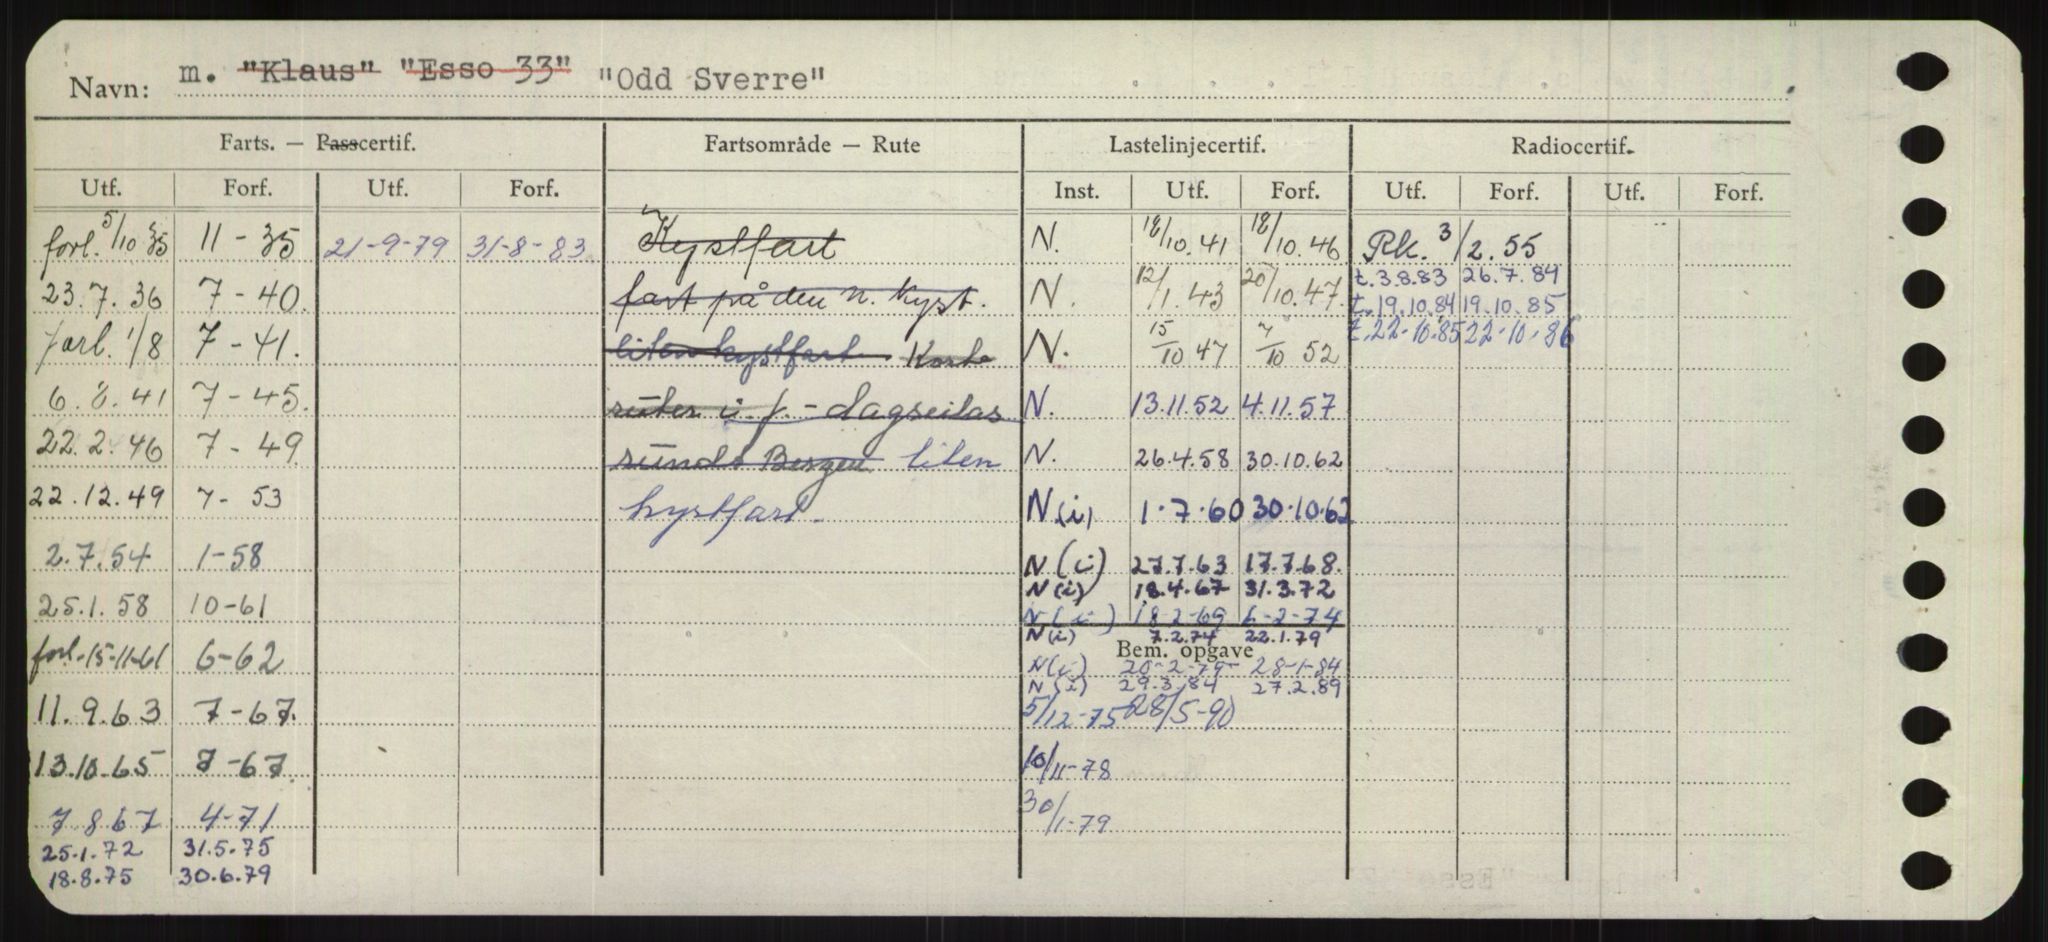 Navn: m. "Klaus" "Esso 33" "Odd Sverre"
Farts. — Passcertif. Fartsområde — Rute Lastelinjecertif. Radiocertif.
Utf. Forf. Utf. Forf. Inst. Utf. Forf. Utf. Forf. Utf. Forf.
forl. 5/10 35 11-35 21-9-79 31-8-83 Kystfart N. 18/10.41 18/10.46 Rk. 3/2.55
t.3.8.83 26.7.84
23.7.36 7-40. fart på den n. kyst. N. 12/1.43 20/10.47
t.19.10.84 19.10.85
forl. 1/8 7-41. liten kystfart Korte N. 15/10 47 7/10 52
t.22-10.85 22-10-86
6.8.41 7-45. ruter i f. - dagseilas N. 13.11.52 4.11.57
22.2.46 7-49 rundt Bergen liten N. 26.4.58 30.10.62
22.12.49 7-53 kystfart. N(i) 1.7.60 30.10.62
2.7.54 1-58 N(i) 27.7.63 17.7.68.
N(i) 18.4.67 31.3.72
25.1.58 10-61 N(i) 18-2-69 6-2-74
N(i) 7.2.74 22.1.79
Bem. opgave
forl. 15-11-61 6-62 N(i) 20-2-79 28-1-84
N(i) 29.3.84 27.2.89
11.9.63 7-67. 5/12-75 28/5-90
13.10.65 7-67. 10/11-78
7 8 67 4-71 30/1-79
25.1.72 31.5.75
18.8.75 30.6.79